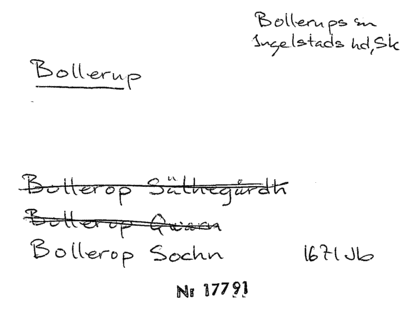 Bollerups sn
Ingelstads hd, Sk
Bollerup
Bollerop Säthegårdh
Bollerop Qwarn
Bollerop Sochn 1671 Jb
Nr 17791